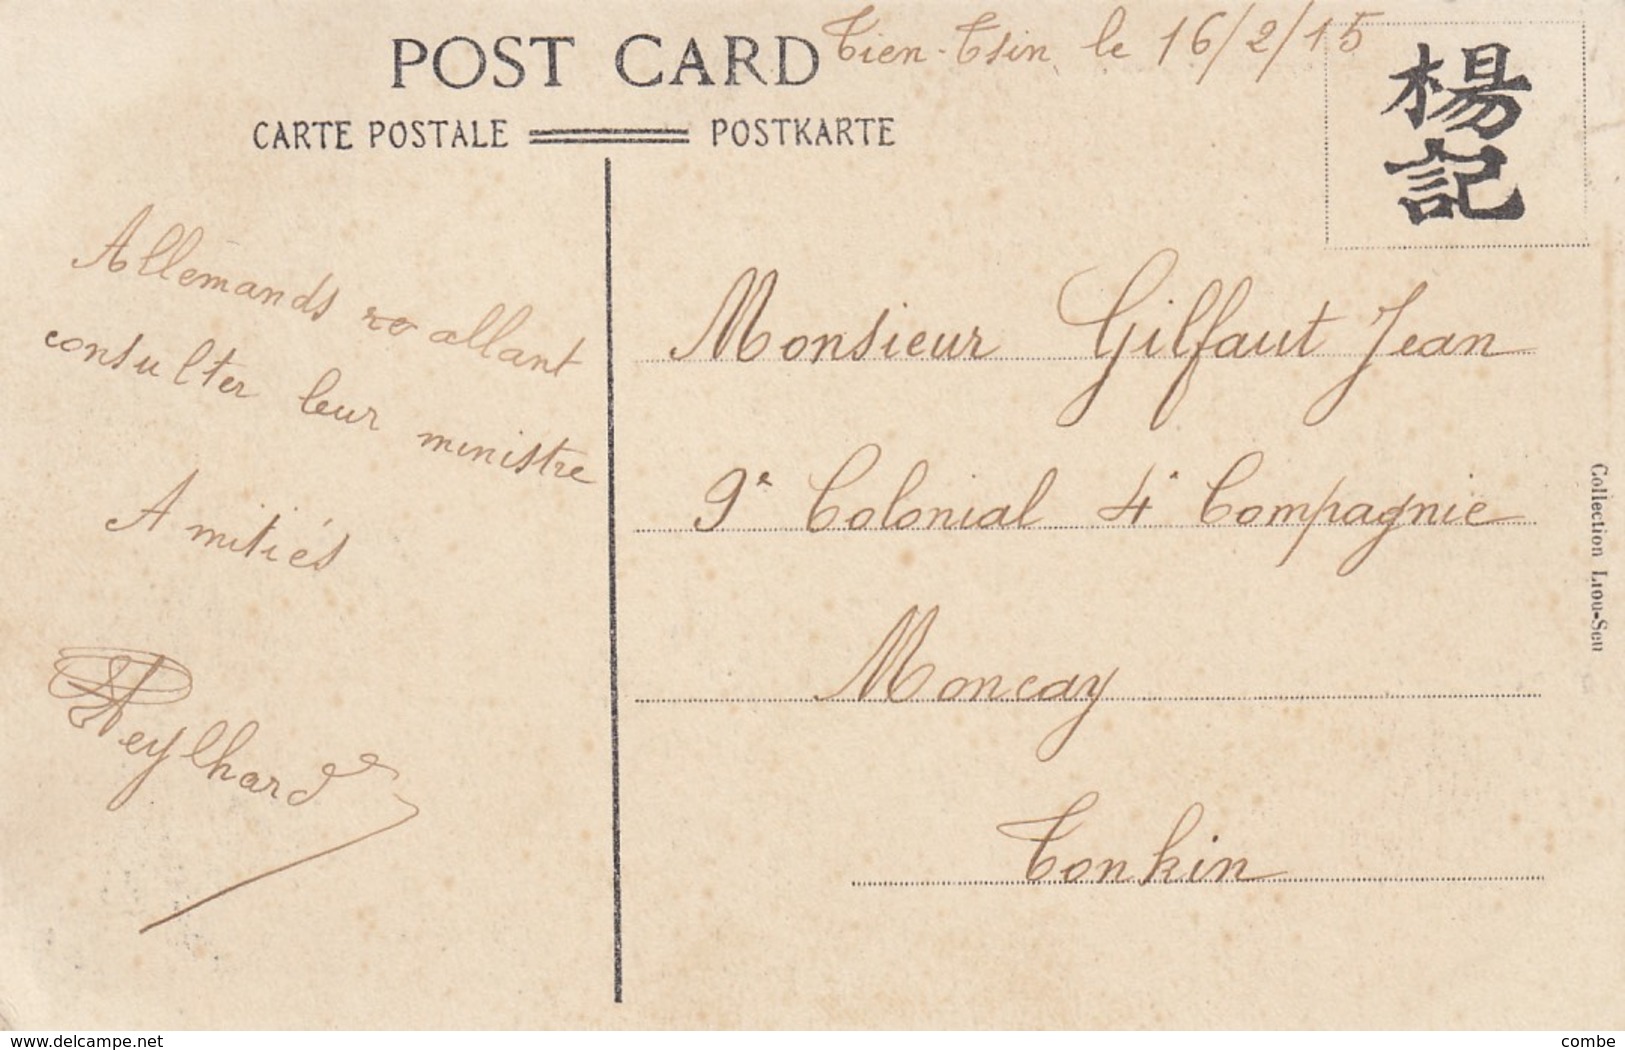 POST CARD
Tien-Tsin le 16/2/15
CARTE POSTALE
POSTKARTE
楊
記
Allemands allant
consulter leur ministre
Amitiés
Peylhard
Monsieur Gilfaut Jean
9e Colonial 4e Compagnie
Moncay
Tonkin
Collection Liou-Seu
www.delcampe.net
combe